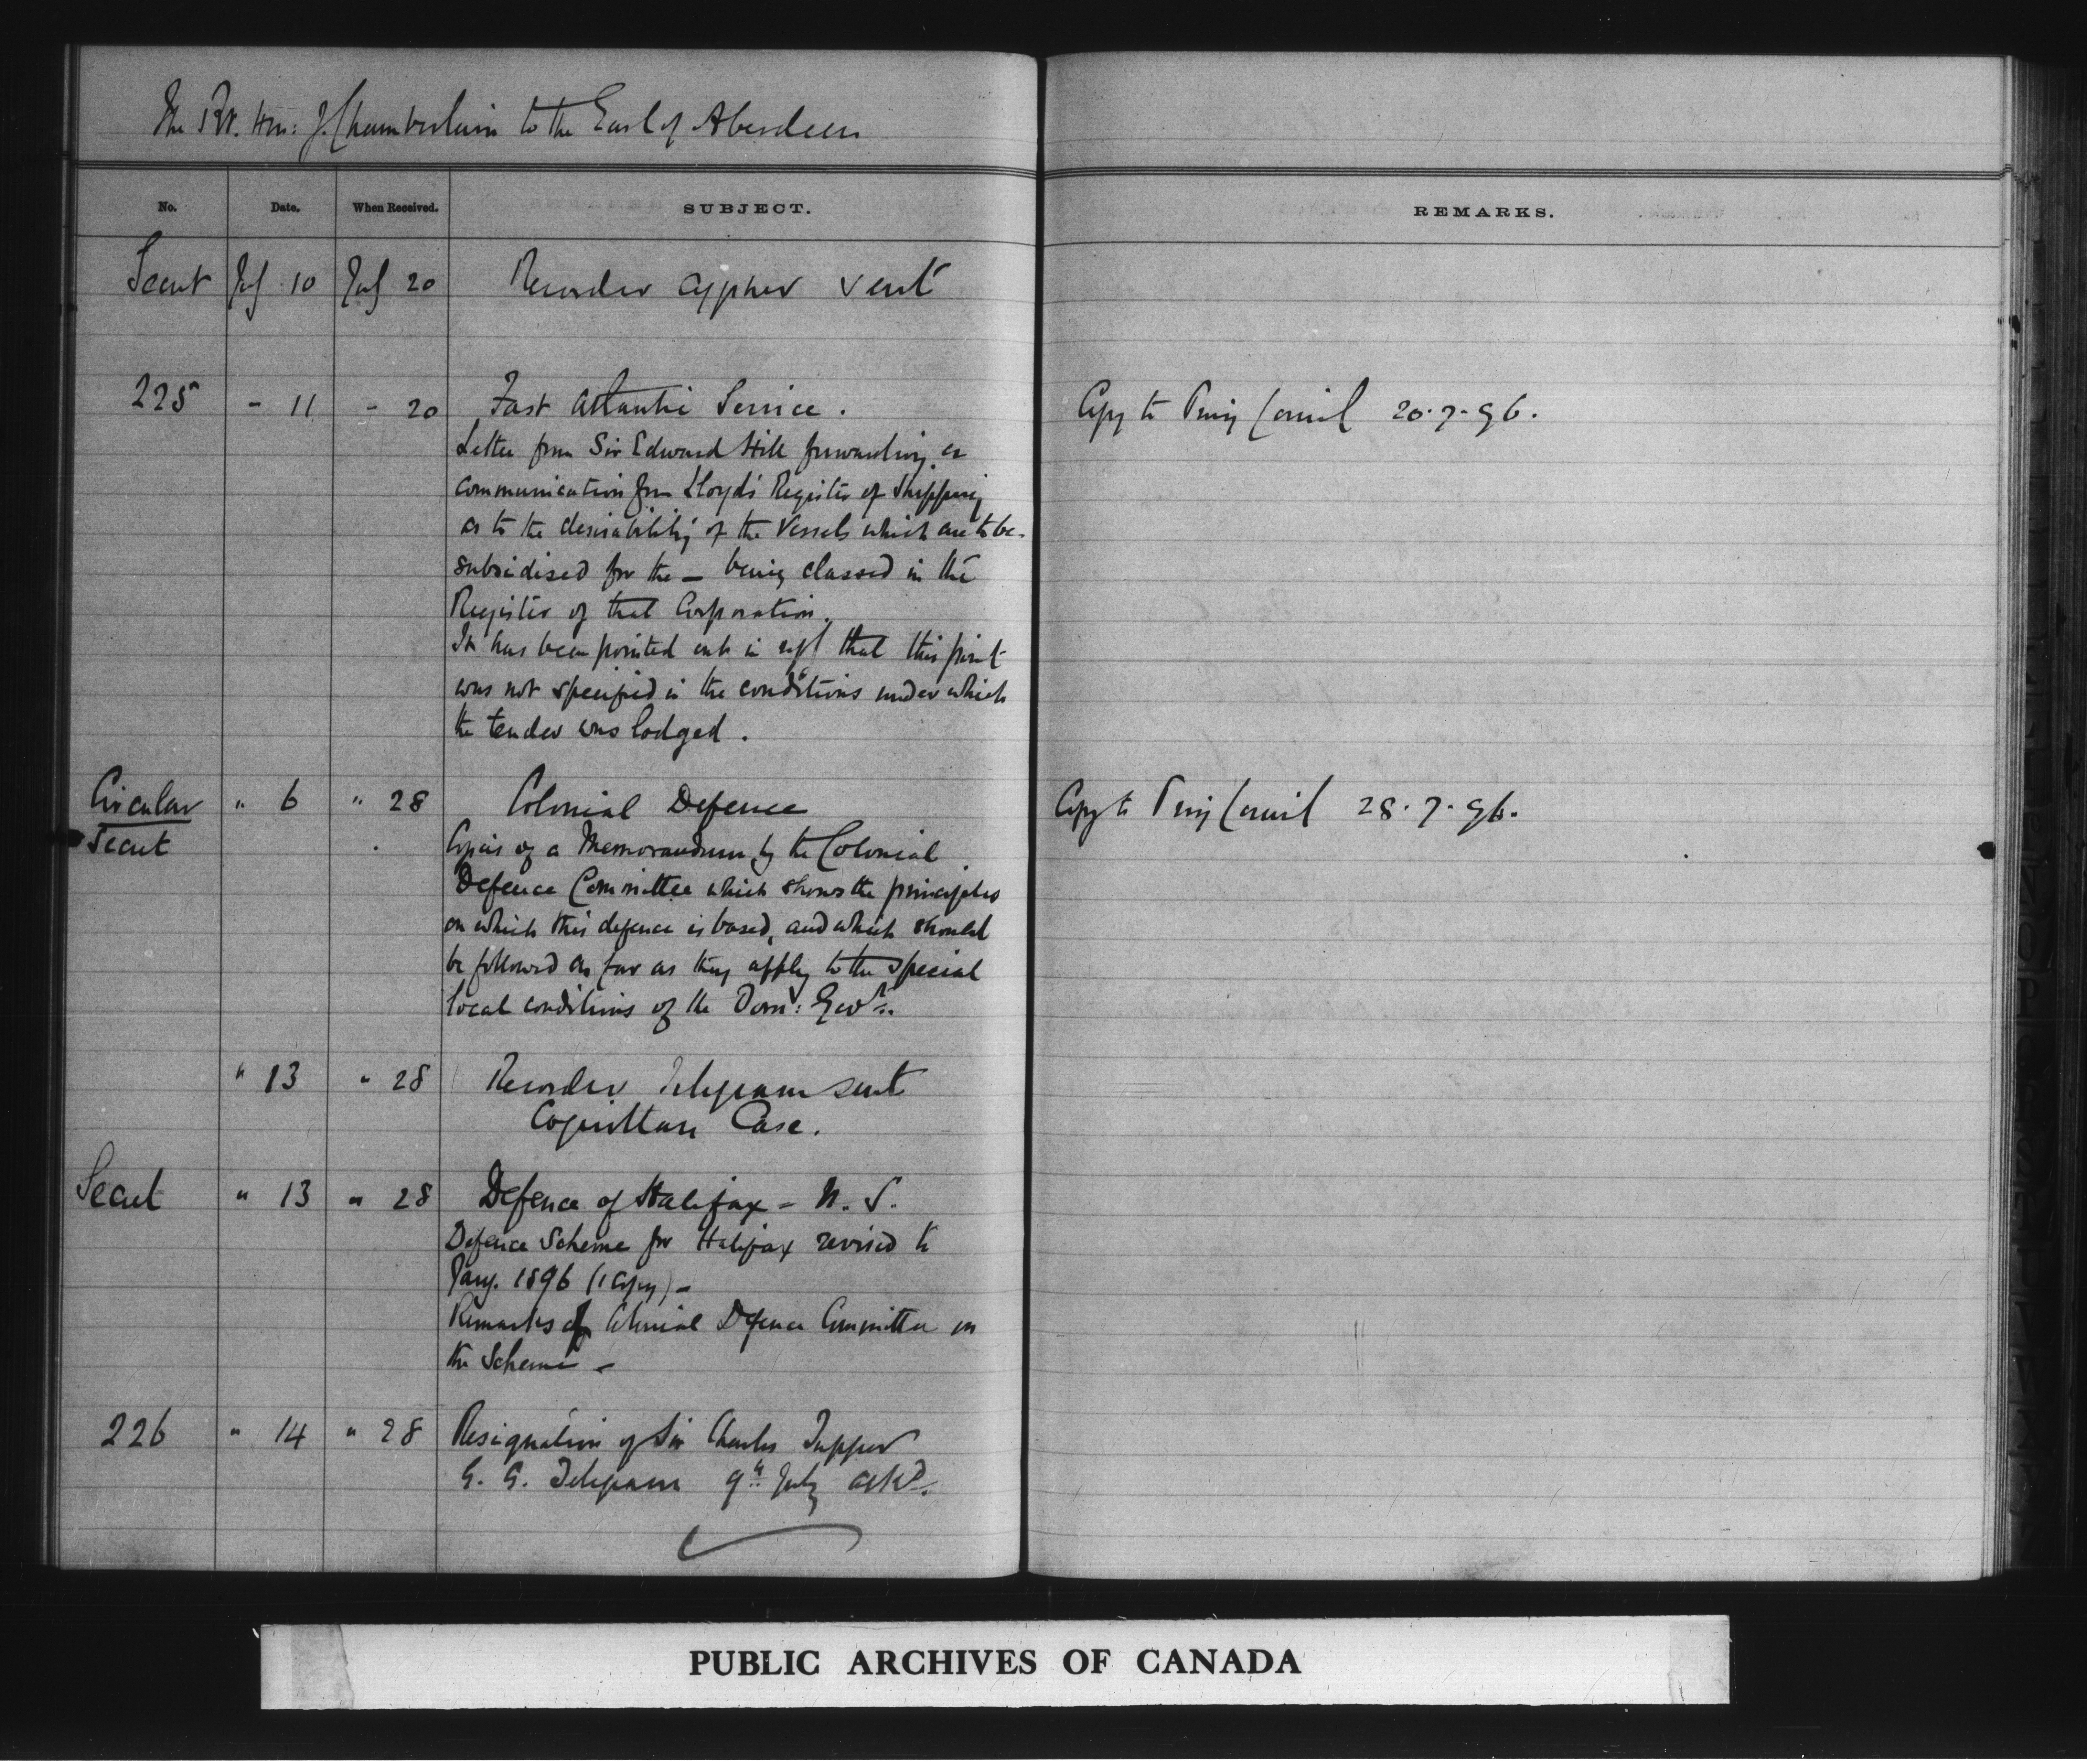 The Rt. Hon: J. Chamberlain to the Earl of Aberdeen
No. Date. When Received. SUBJECT. REMARKS.
Secret July 10 July 20 Recorder cypher sent
225 - 11 - 20 Fast Atlantic Service. Copy to Privy Council 20.7.96.
Letter from Sir Edward Hill forwarding a
communication from Lloyd's Register of Shipping
as to the desirability of the Vessels which are to be
subsidised for the — being classed in the
Register of that Corporation.
It has been pointed out in reply that this point
was not specified in the conditions under which
the tender was lodged.
Circular " 6 " 28 Colonial Defence Copy to Privy Council 28.7.96.
Secret
Copies of a Memorandum by the Colonial
Defence Committee which shows the principles
on which this defence is based, and which should
be followed as far as they apply to the special
local conditions of the Dom: Govt.
" 13 " 28 Recorder Telegram sent
Coquittan Case.
Secret " 13 " 28 Defence of Halifax - N. S.
Defence Scheme for Halifax revised to
Jany. 1896 (1 copy) -
Remarks of Colonial Defence Committee on
the Scheme -
226 " 14 " 28 Resignation of Sir Charles Tupper
G. G. Telegram 9th July ackd.
PUBLIC ARCHIVES OF CANADA